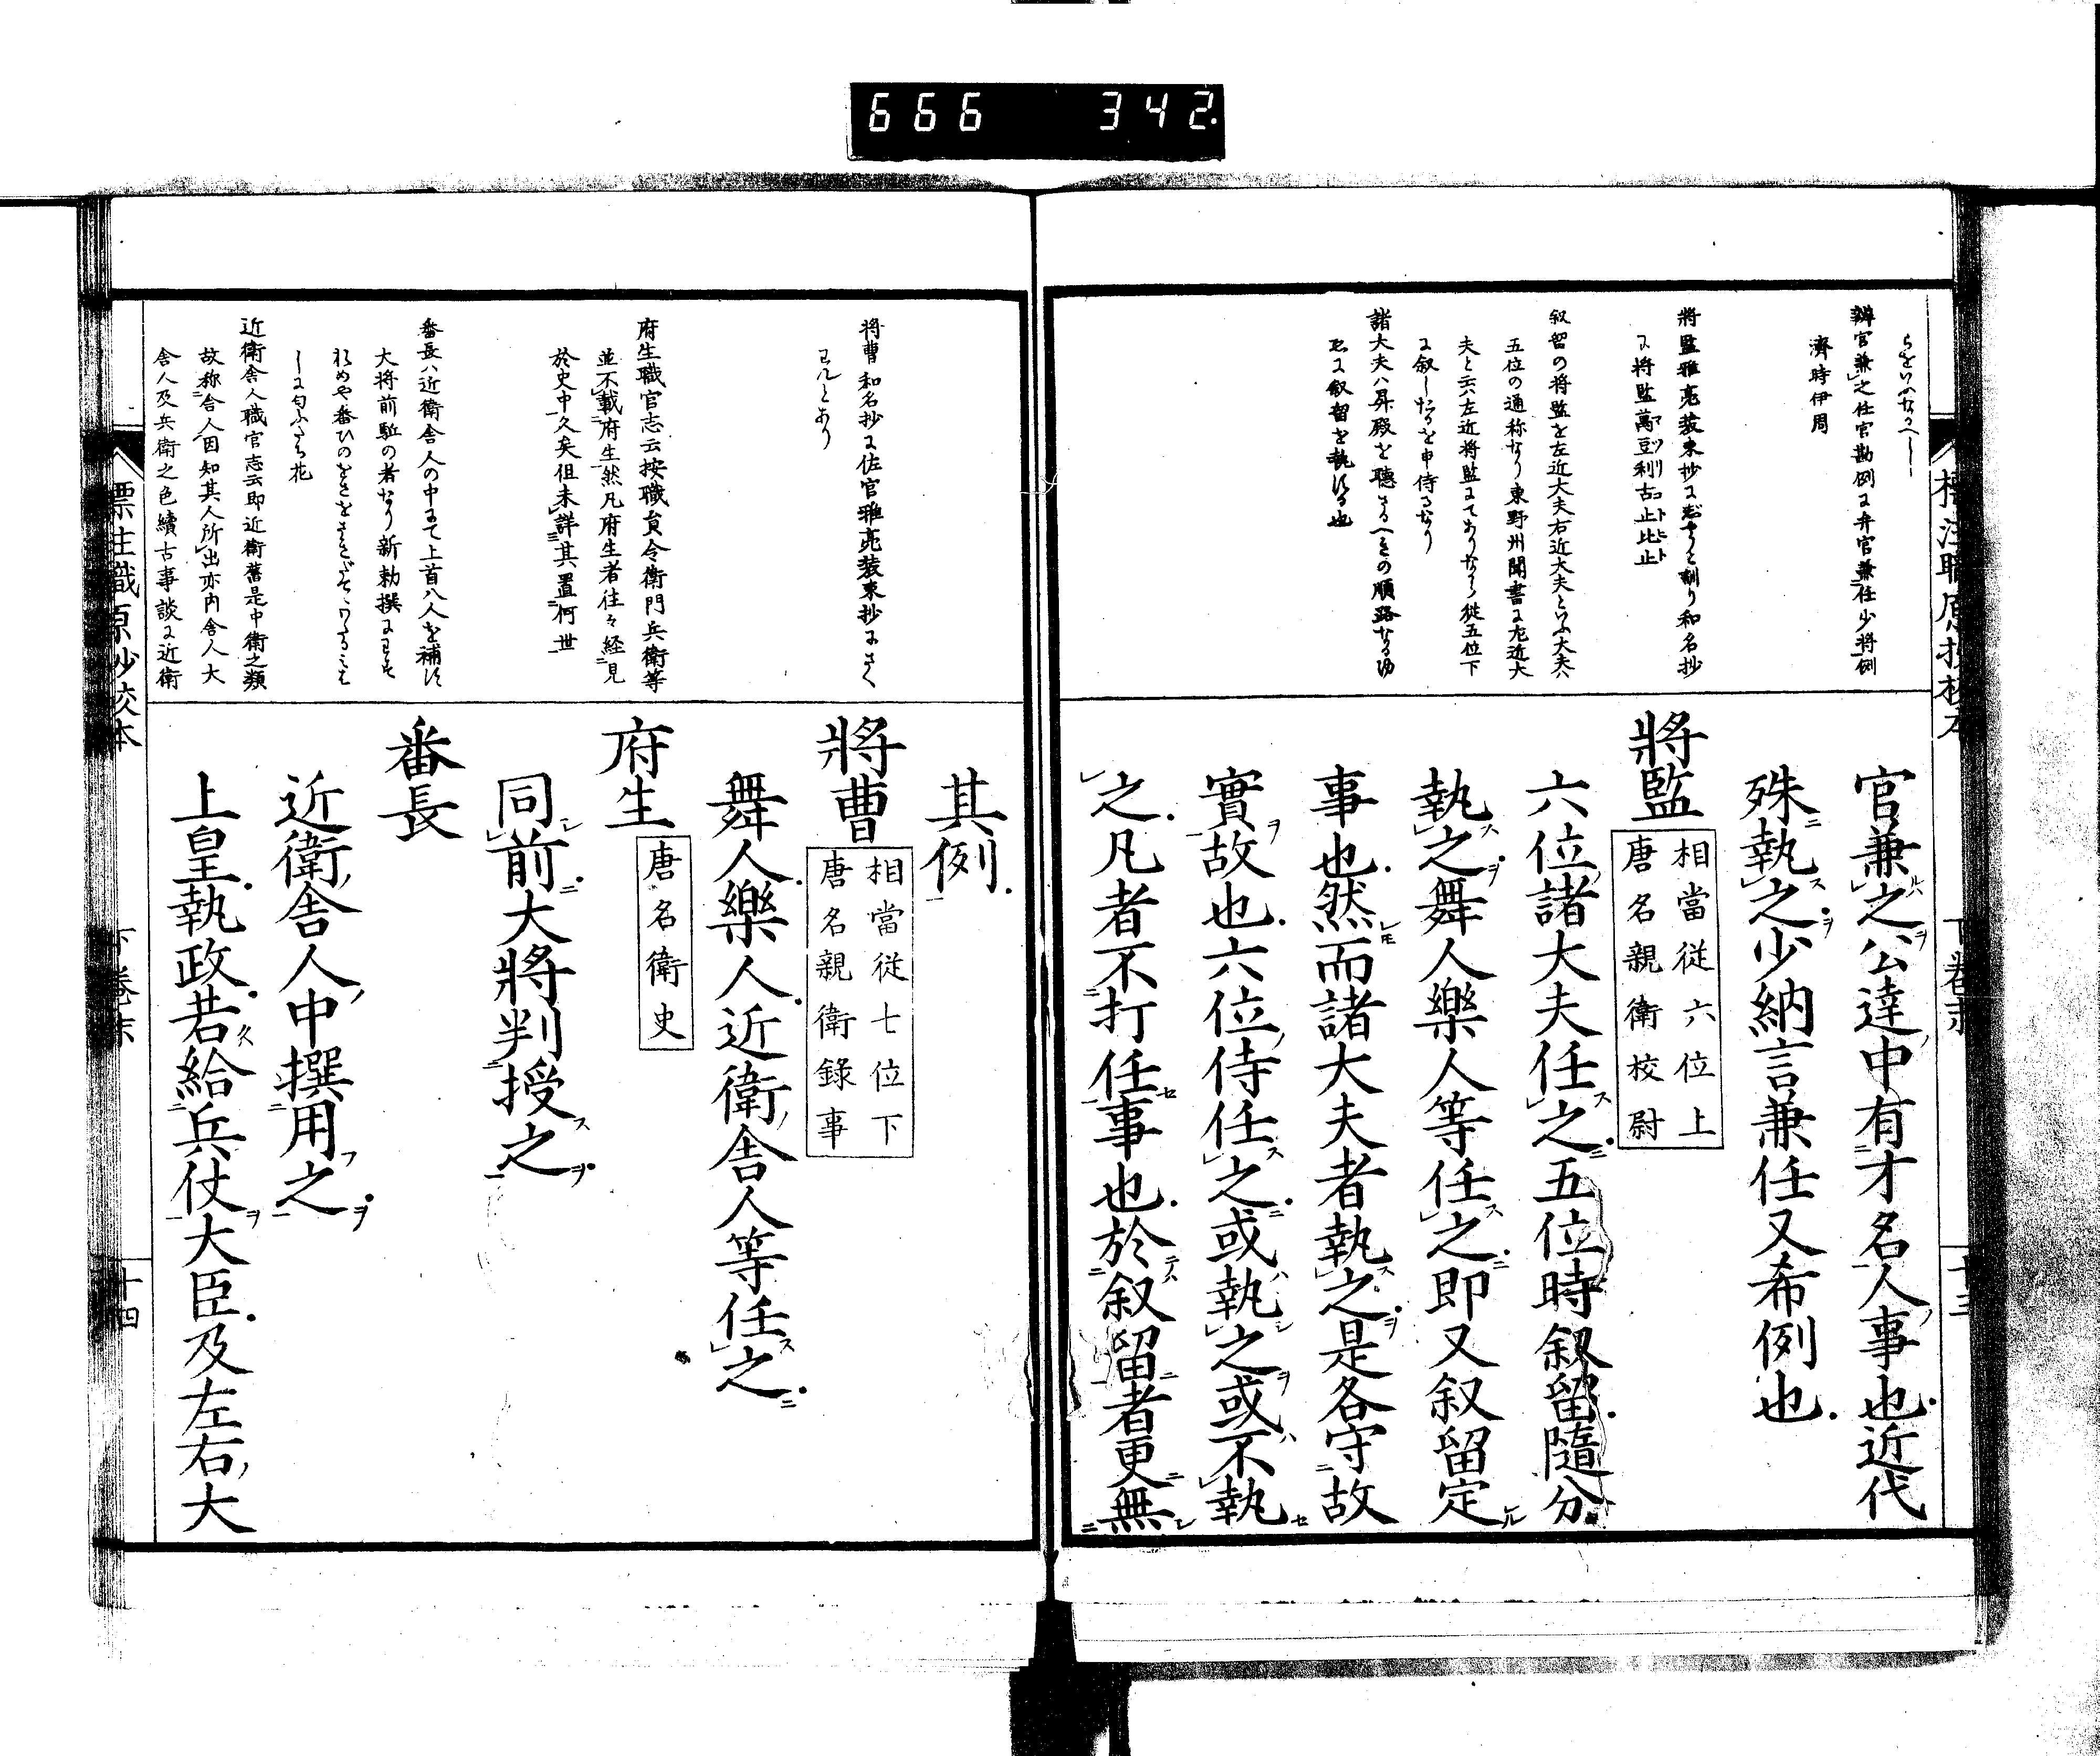 666 342
標注職原抄校本
下巻末
十三
らをいふなるへし
辨官兼之任官勘例に弁官兼任少將例
濟時伊周
官兼之公達中有才名人事也近代
殊執之少納言兼任又希例也
將監 相當従六位上
唐名親衛校尉
六位諸大夫任之五位時叙留隨分
執之舞人樂人等任之即又叙留定
事也然而諸大夫者執之是各守故
實故也六位侍任之或執之或不執
之凡者不打任事也於叙留者更無
將監雅亮装束抄に
に將監萬豆利古止比止
叙留の将監を左近大夫右近大夫といふ大夫ハ
五位の通称なり東野州聞書に左近大
夫と云ハ左近将監にてありなから従五位下
に叙したるを申侍るなり
諸大夫ハ昇殿を聴さるへきの順路なるゆ
ゑに叙留を執する也
其例
將曹 相當従七位下
唐名親衛錄事
舞人樂人近衛舎人等任之
府生 唐名衛史
同前大將判授之
番長
近衛舎人中撰用之
上皇執政若給兵仗大臣及左右大
将曹和名抄に佐官雅亮装束抄にさく
わんとあり
府生職官志云按職員令衛門兵衛等
並不載府生然凡府生者往々経見
於史中久矣但未詳其置何世
番長ハ近衛舎人の中にて上首八人を補す
大将前駈の者なり新勅撰に
しに匂ふたち花
近衛舎人職官志云即近衛舊是中衛之類
故称舎人因知其人所出亦内舎人大
舎人及兵衛之色續古事談に近衛
標注職原抄校本
下巻末
十四